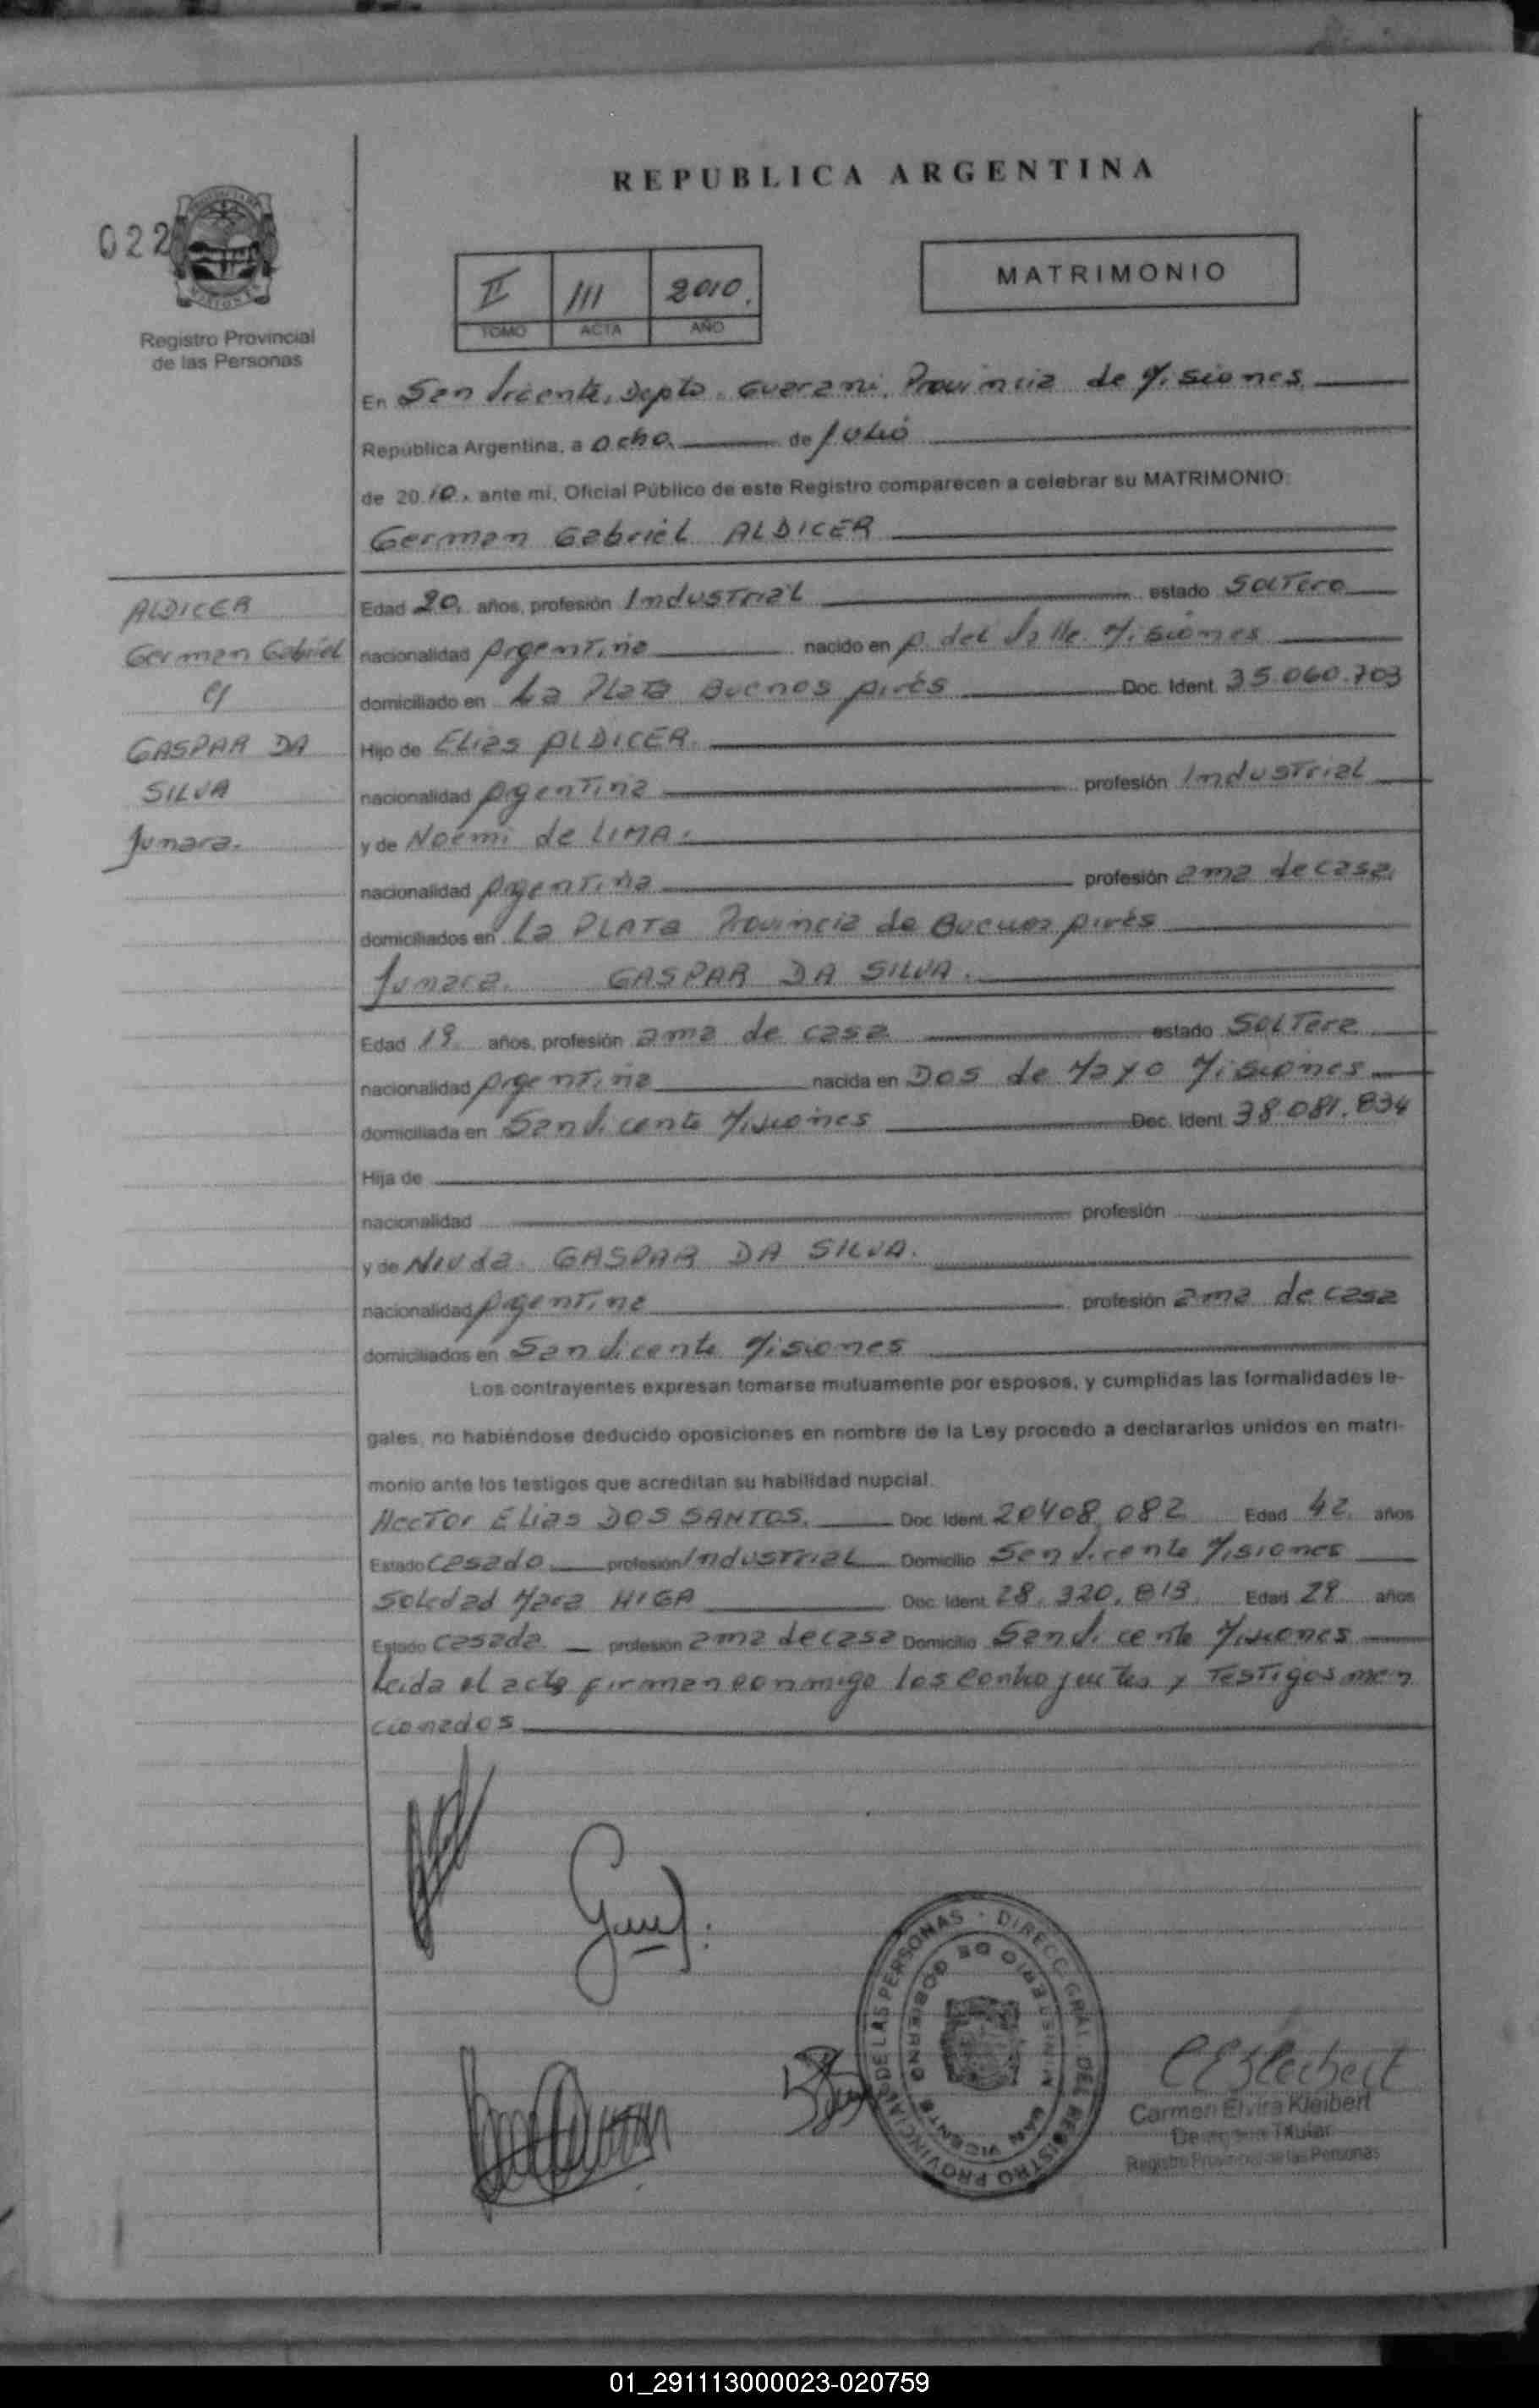 REPUBLICA ARGENTINA
022
Registro Provincial
de las Personas
II 111 2010.
TOMO ACTA AÑO
MATRIMONIO
En San Vicente, Depto. Guarani, Provincia de Misiones
República Argentina, a ocho de Julio
de 2010, ante mi, Oficial Público de este Registro comparecen a celebrar su MATRIMONIO:
German Gabriel ALDICER
ALDICER
German Gabriel
c/
GASPAR DA
SILVA
Junara.
Edad 20. años, profesión Industrial estado Soltero
nacionalidad Argentina nacido en A. del Valle. Misiones
domiciliado en La Plata Buenos Aires Doc. Ident. 35.060.703
Hijo de Elias ALDICER.
nacionalidad Argentina profesión Industrial
y de Noemi de LIMA.
nacionalidad Argentina profesión ama de casa
domiciliados en La PLATA Provincia de Buenos Aires
Junara. GASPAR DA SILVA.
Edad 19 años, profesión ama de casa estado Soltera
nacionalidad Argentina nacida en Dos de Mayo Misiones
domiciliada en San Vicente Misiones Doc. Ident. 38.081.834
Hija de
nacionalidad profesión
y de Neuda. GASPAR DA SILVA.
nacionalidad Argentina profesión ama de casa
domiciliados en San Vicente Misiones
Los contrayentes expresan tomarse mutuamente por esposos, y cumplidas las formalidades le-
gales, no habiéndose deducido oposiciones en nombre de la Ley procedo a declararlos unidos en matri-
monio ante los testigos que acreditan su habilidad nupcial.
Hector Elias DOS SANTOS. Doc. Ident. 20408.082 Edad 42. años
Estado Casado profesión Industrial Domicilio San Vicente Misiones
Soledad Mara HIGA Doc. Ident. 28.320.813. Edad 29 años
Estado Casada. profesión ama de casa Domicilio San Vicente Misiones
Leida el acta firman conmigo los contrayentes y Testigos men
cionados
DIRECC. GRAL. DEL REGISTRO PROVINCIAL DE LAS PERSONAS
MINISTERIO DE GOBIERNO
SAN VICENTE
CEKleibert
Carmen Elvira Kleibert
Titular
Registro Provincial de las Personas
01_291113000023-020759